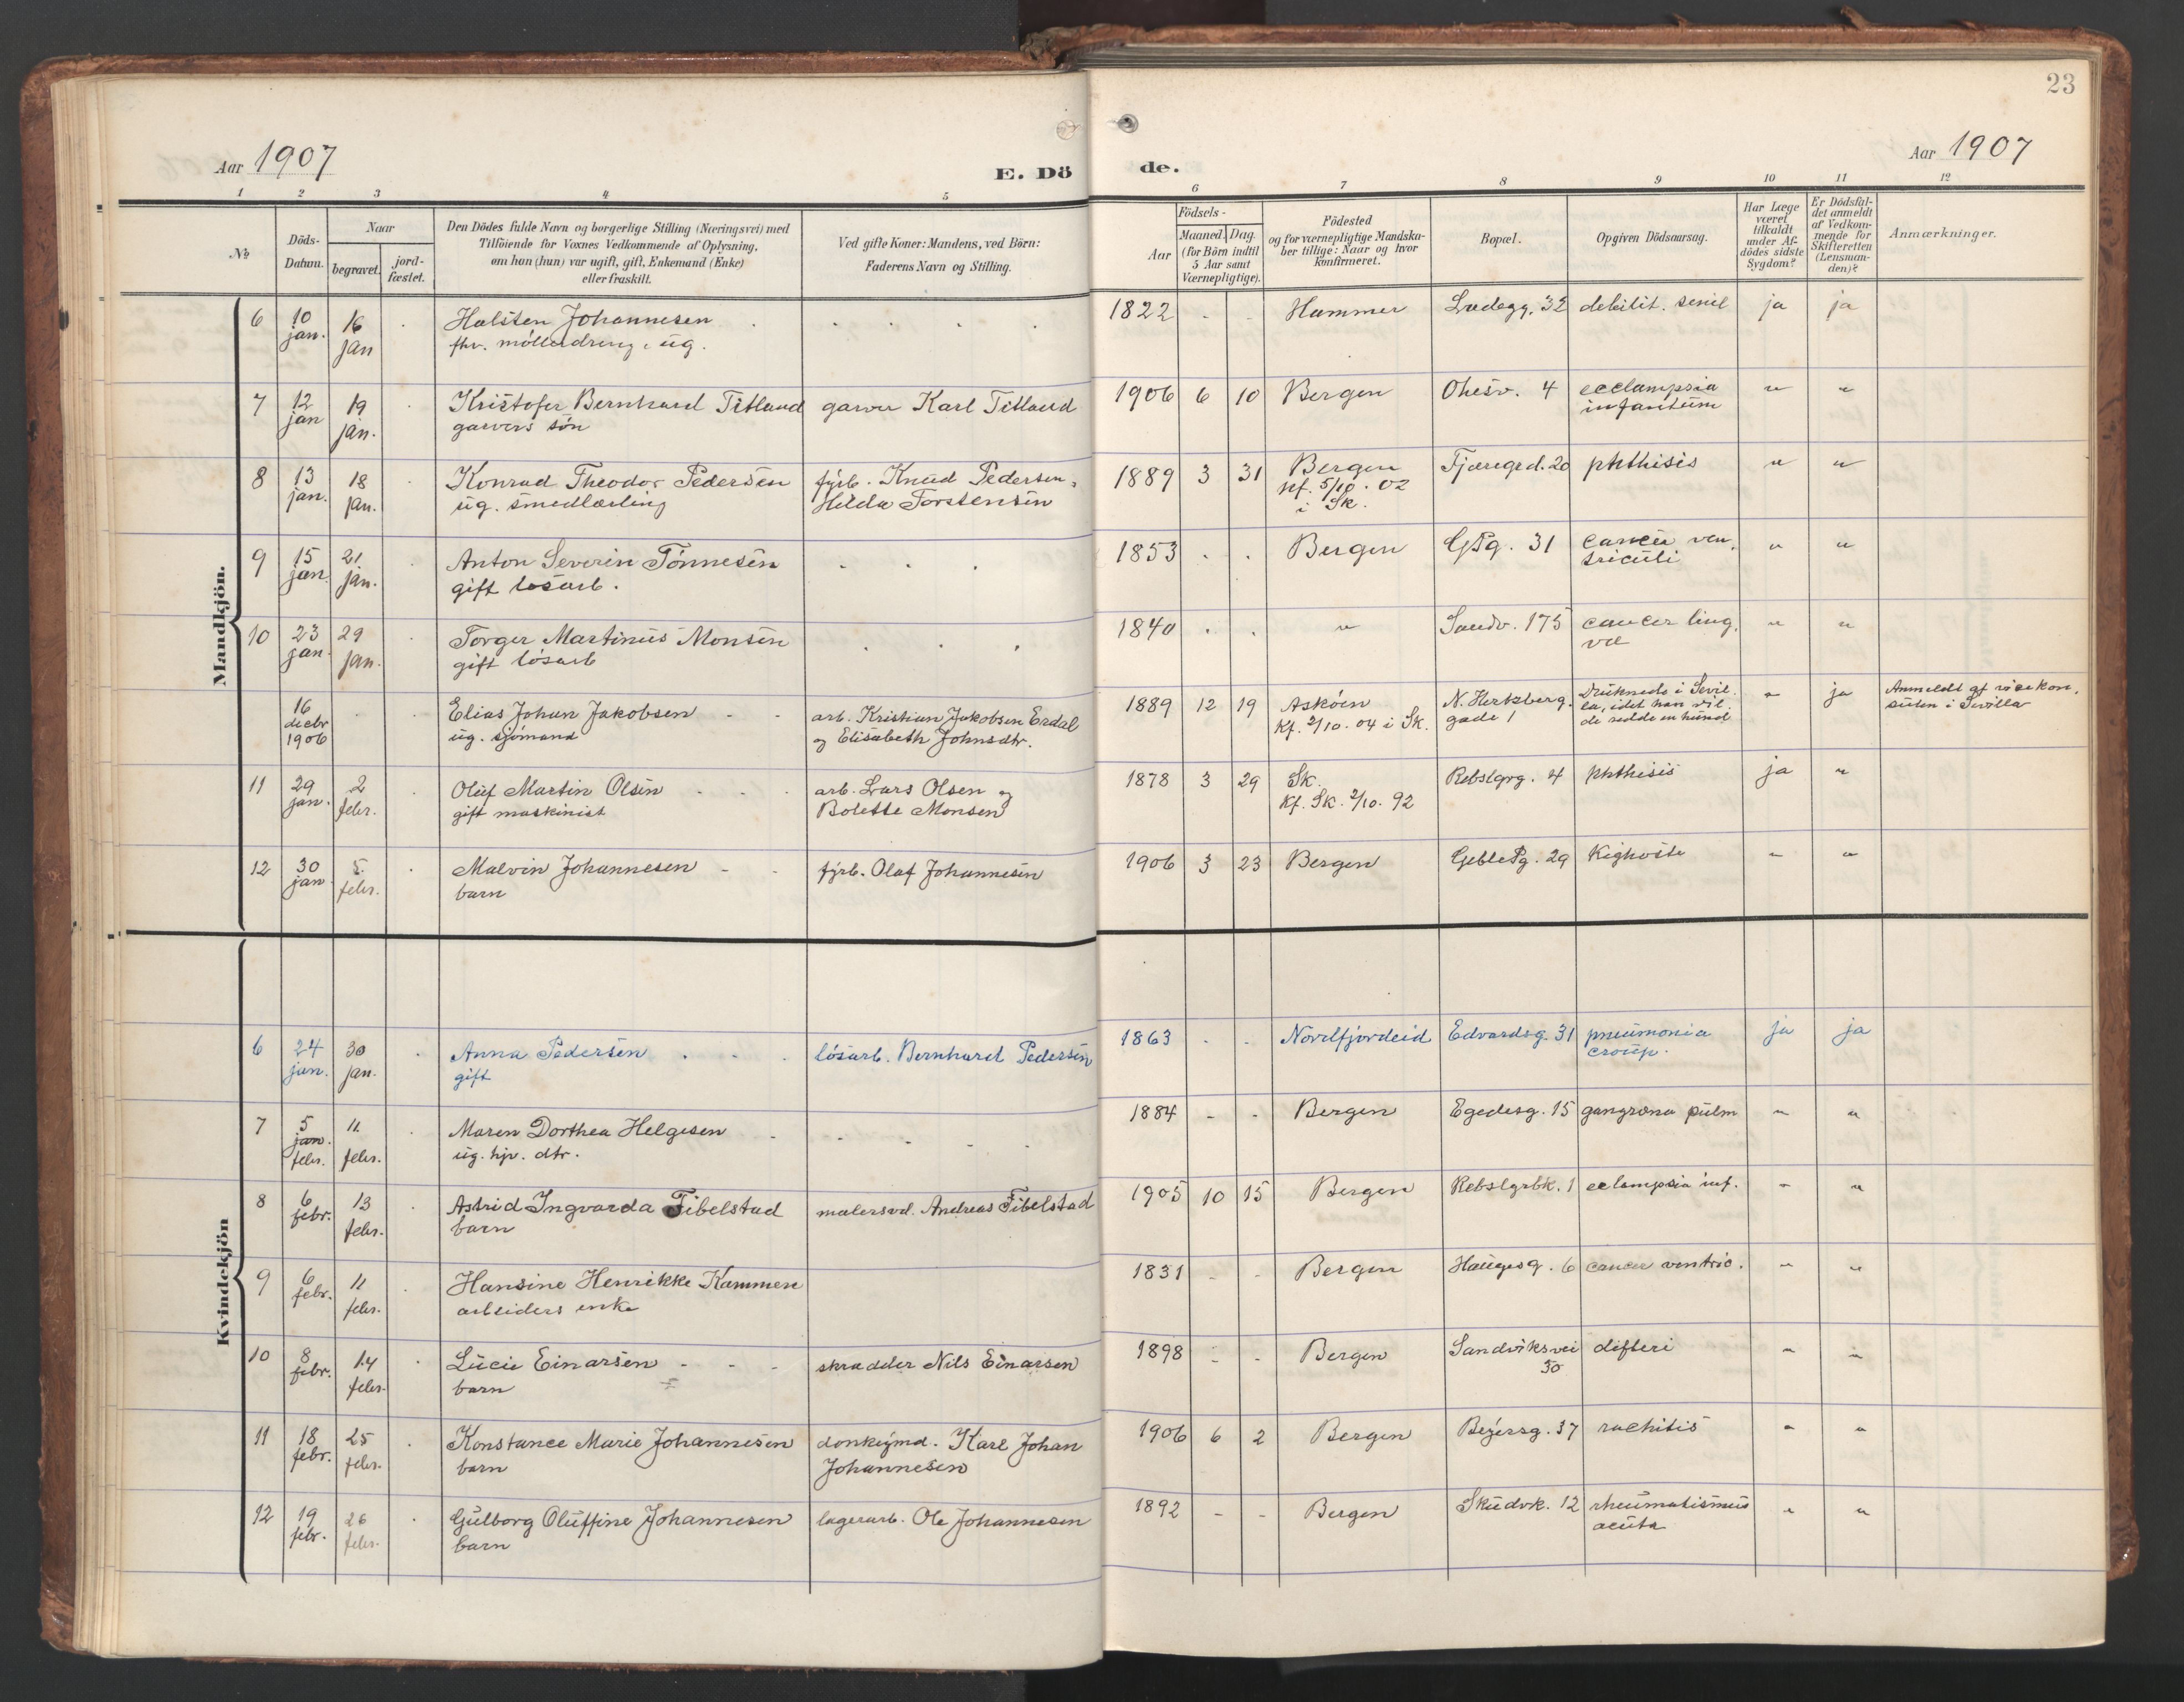 23
Aar 1907
E. Dö de.
Aar 1907
1 2 3 4 5 6 7 8 9 10 11 12
No
Döds-Datum.
Naar
begravet.
jord-fæstet.
Den Dödes fulde Navn og borgerlige Stilling (Næringsvei) med
Tilföiende for Voxnes Vedkommende af Oplysning,
om han (hun) var ugift, gift, Enkemand (Enke)
eller fraskilt.
Ved gifte Koner: Mandens, ved Börn:
Faderens Navn og Stilling.
Födsels-
Aar
Maaned. Dag.
(for Börn indtil
5 Aar samt
Værnepligtige).
Födested
og for værnepligtige Mandska-
ber tillige: Naar og hvor
konfirmeret.
Bopæl.
Opgiven Dödsaarsag.
Har Læge
været
tilkaldt
under Af-
dödes sidste
Sygdom?
Er Dödsfal-
det anmeldt
af Vedkom-
mende for
Skifteretten
(Lensman-
den)?
Anmærkninger.
Mandkjön.
6 10 jan. 16 jan Halsten Johannesen 1822 - - Hammer Ladegg. 32 debilit. senil ja ja
fhv. möllerdreng, ug.
7 12 jan 19 jan. Kristofer Bernhard Titland garver Karl Titland 1906 6 10 Bergen Ohesv. 4 ecclampsia " "
garvers sön infantum
8 13 jan. 18 jan. Konrad Theodor Pedersen fyrb. Knud Pedersen, 1889 3 31 Bergen Tjæregrd. 20 phthisis " "
ug. smedlærling Hilda Torstensen kf. 5/10. 02
i Sk.
9 15 jan. 21 jan. Anton Severin Tönnesen 1853 . . Bergen GPg. 31 cancer ven- " "
gift lösarb. triculi
10 23 jan. 29 jan. Torger Martinus Monsen 1840 . . " Sandv. 175 cancer ling. " "
gift lösarb væ
16 decbr 1906 Elias Johan Jakobsen - - arb. Kristian Jakobsen Erdal 1889 12 19 Asköen N. Hertzberg. Druknede i Sevil- - ja Anmeldt af visekon-
ug. sjömand og Elisabeth Johnsdtr. Kf. 2/10. 04 i Sk. gade 1 la, idet han vil- sülen i Sevilla
de redde en hund
11 29 jan. 2 febr. Oluf Martin Olsen - - - arb. Lars Olsen og 1878 3 29 Sk. Rebslgrg. 4 phthisis ja "
gift maskinist Bolette Monsen Kf. Sk. 2/10. 92
12 30 jan 5 febr. Malvin Johannesen - - fyrb. Olaf Johannesen 1906 3 23 Bergen GeblePg. 29 Kighoste " "
barn
Kvindekjön
6 24 jan. 30 jan. Anna Pedersen . . . lösarb. Bernhard Pedersen 1863 . . Nordfjordeid Edvardsg. 31 pneumonia ja ja
gift croup.
7 5 jan. febr. 11 febr. Maren Dorthea Helgesen - 1884 - - Bergen Egedesg. 15 gangræna pulm " "
ug. hjv. dtr.
8 6 febr. 13 febr. Astrid Ingvarda Fibelstad malersvd. Andreas Fibelstad 1905 10 15 Bergen Rebslgrbk. 1 eclampsia inf. " "
barn
9 6 febr. 11 febr. Hansine Henrikke Kammen 1831 - - Bergen Haugesg. 6 cancer ventric. " "
arbeiders enke
10 8 febr. 14 febr. Lucie Einarsen - - - skrædder Nils Einarsen 1898 - - Bergen Sandviksvei difteri " "
barn 50
11 18 febr. 25 febr. Konstance Marie Johannesen donkeymd. Karl Johan 1906 6 2 Bergen Beyersg. 37 rachitis " "
barn Johannesen
12 19 febr. 26 febr. Gulborg Oluffine Johannesen lagerarb. Ole Johannesen 1892 - - Bergen Skudvk. 12 rheumatismus " "
barn acuta